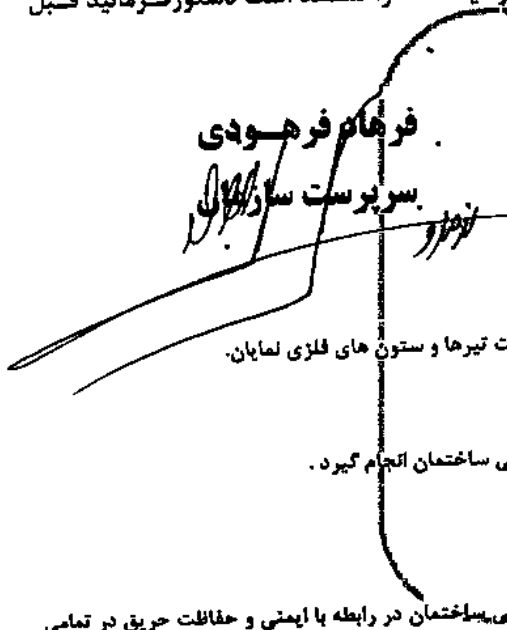 است دستور فرمائید قبل
فرهاد فرهودی
سرپرست سازمان
ت تیرها و ستون های فلزی نمایان.
ی ساختمان انجام گیرد .
ی ساختمان در رابطه با ایمنی و حفاظت حریق در تمامی